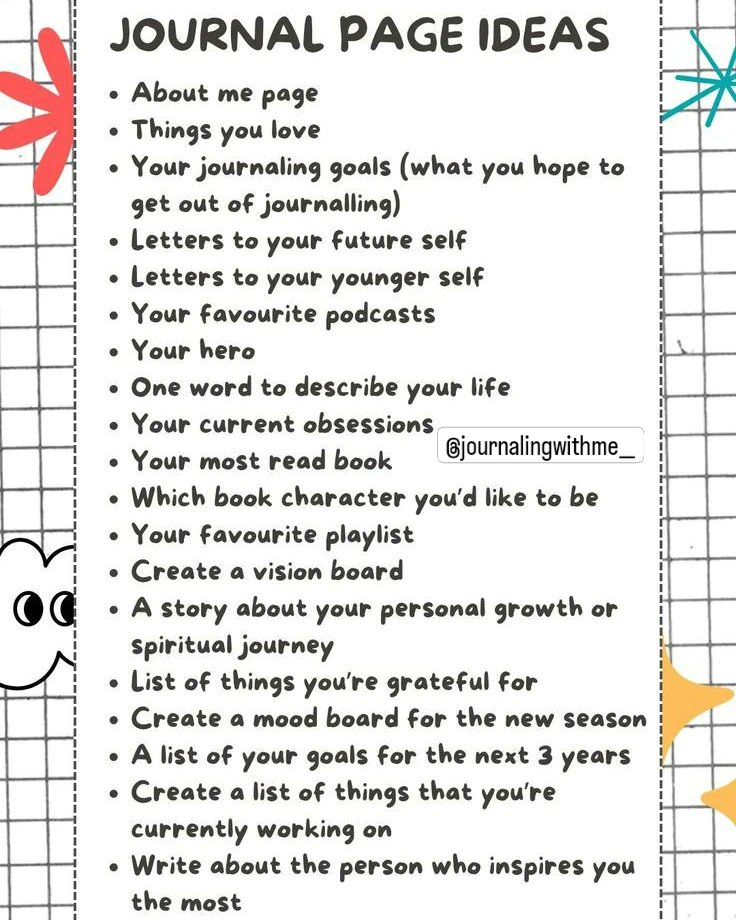 JOURNAL PAGE IDEAS
• About me page
• Things you love
• Your journaling goals (what you hope to
get out of journalling)
• Letters to your future self
• Letters to your younger self
• Your favourite podcasts
• Your hero
• One word to describe your life
• Your current obsessions
@journalingwithme_
• Your most read book
• Which book character you'd like to be
• Your favourite playlist
• Create a vision board
• A story about your personal growth or
spiritual journey
• List of things you're grateful for
• Create a mood board for the new season
• A list of your goals for the next 3 years
• Create a list of things that you're
currently working on
• Write about the person who inspires you
the most